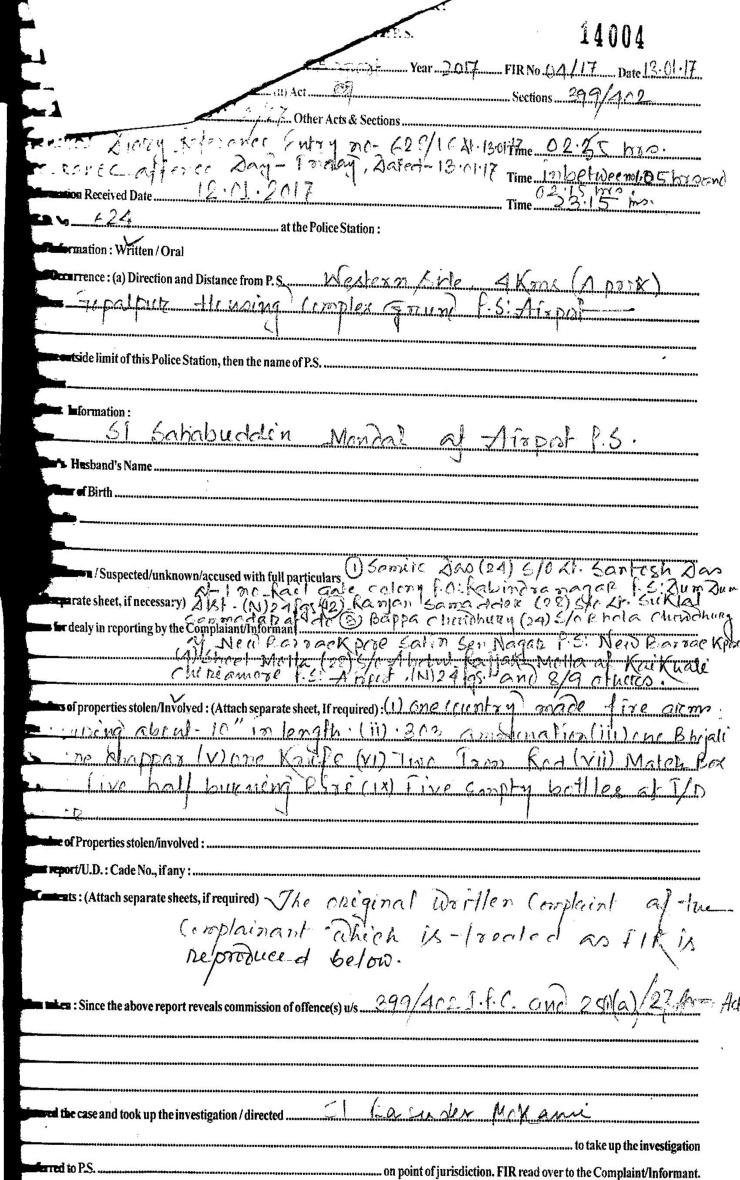 P.S.
14004
Year 2017 FIR No 04/17 Date 13.01.17
(ii) Act Sections 399/402
Other Acts & Sections
Diary Reference Entry no- 628/16 At. 13.01.17 Time 02.35 hrs.
offence Day- Friday, Dated- 13.01.17 Time inbetween 01.05 hrs and 02.15 hrs.
Received Date 12.01.2017 Time 23.15 hrs.
624 at the Police Station :
Information : Written / Oral
Occurrence : (a) Direction and Distance from P.S. Western side 4 Kms (Aprox)
Gopalpur Housing Complex Ground P.S: Airport
outside limit of this Police Station, then the name of P.S.
Information :
SI Sahabuddin Mondal of Airport P.S.
Husband's Name
of Birth
/ Suspected/unknown/accused with full particulars (1) Samir Das (24) S/O Lt. Santosh Das
of- 1 no. Rail Gate colony P.O: Rabindranagar P.S: Dum Dum
separate sheet, if necessary) Dist- (N) 24 Pgs (2) Ranjan Samaddar (28) S/o Lt. Suklal
for dealy in reporting by the Complaiant/Informant Samaddar of do (3) Bappa Chowdhury (24) S/o Bhola Chowdhury
of New Barrackpore Satin Sen Nagar P.S: New Barrackpore
(4) Molla (28) S/o Abdul Rajjak Molla of Kaikhali
Chiriamore P.S: Airport, (N) 24 Pgs. and 8/9 others.
of properties stolen/Involved : (Attach separate sheet, If required) : (i) one country made fire arms
about- 10" in length. (ii) .303 (iii) one Bhojali
khappar (v) one Knife (vi) Two Iron Rod (vii) Match Box
five half burning (ix) Five empty bottles of I/D
of Properties stolen/involved :
report/U.D. : Cade No., if any :
Contents : (Attach separate sheets, if required) The original written Complaint of the
Complainant which is treated as FIR is
reproduced below.
taken : Since the above report reveals commission of offence(s) u/s 399/402 I.P.C. and 25(a)/27 Arms Act
the case and took up the investigation / directed SI
to take up the investigation
to P.S. on point of jurisdiction. FIR read over to the Complaint/Informant.